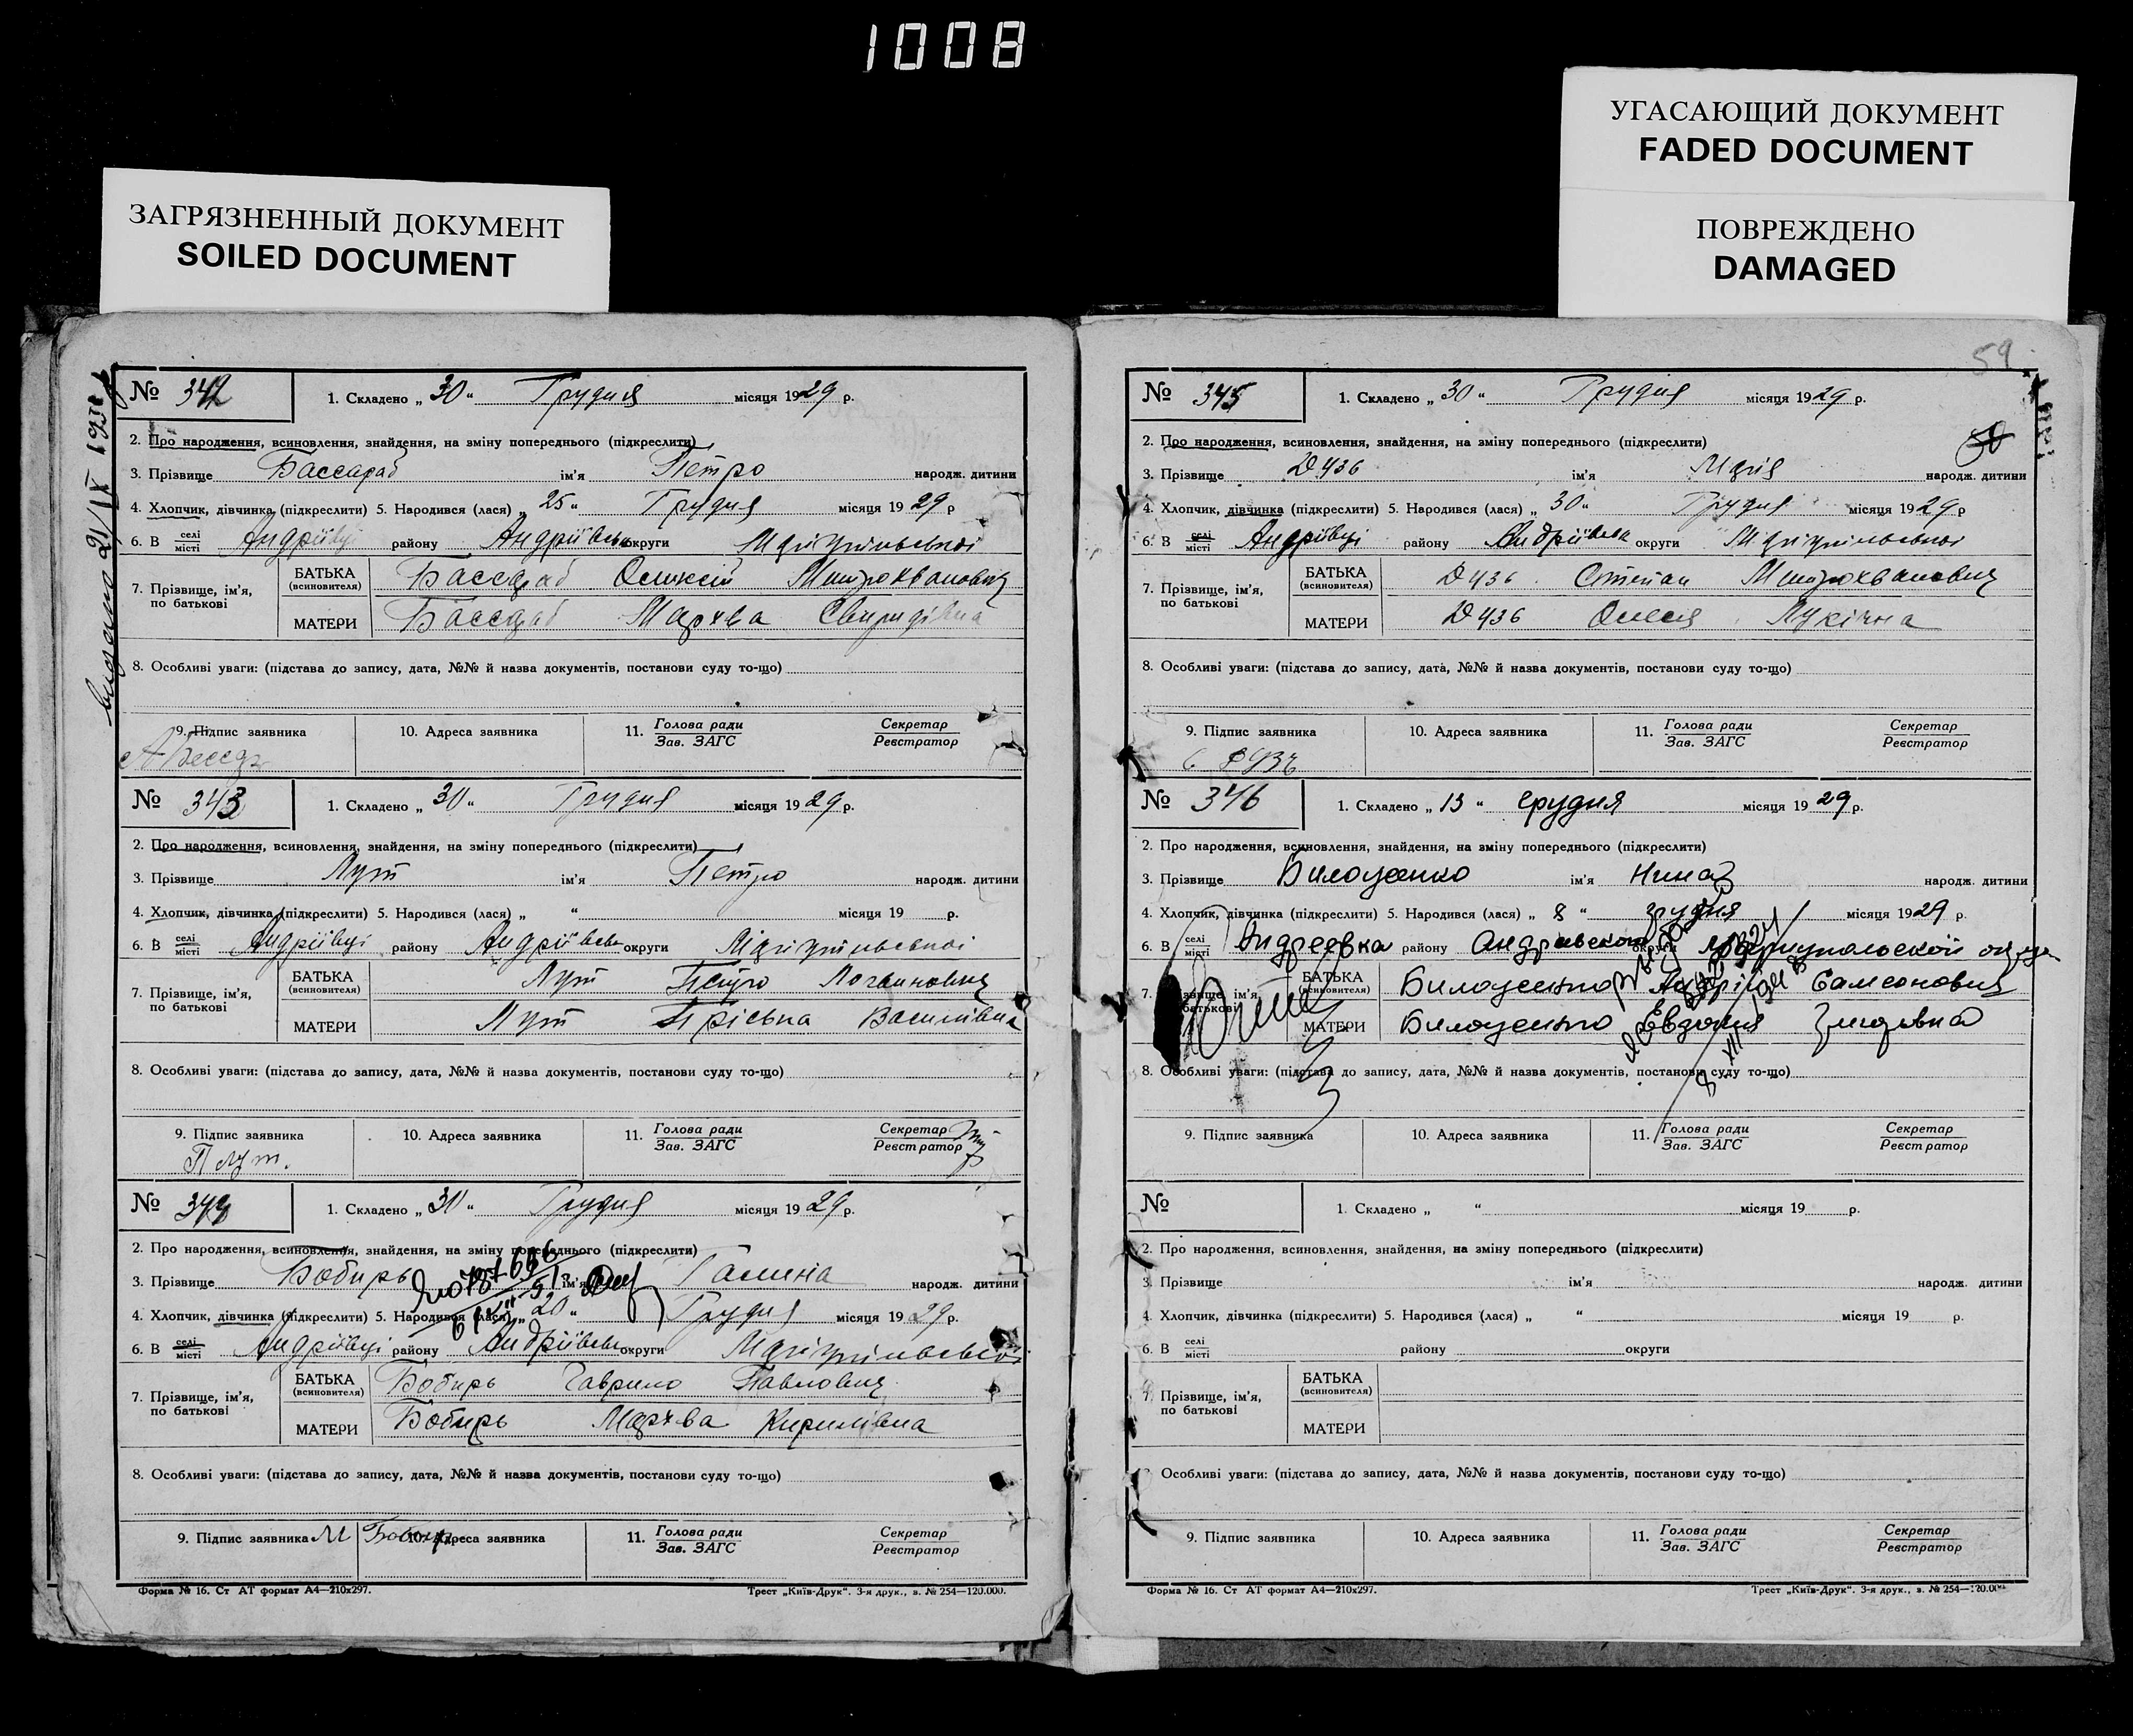 1008
УГАСАЮЩИЙ ДОКУМЕНТ
FADED DOCUMENT
ЗАГРЯЗНЕННЫЙ ДОКУМЕНТ
SOILED DOCUMENT
ПОВРЕЖДЕНО
DAMAGED
№ 342 1. Складено „ 30 “ Грудня місяця 1929 р.
2. Про народження, всиновлення, знайдення, на зміну попереднього (підкреслити)
3. Прізвище Бассараб ім'я Петро народж. дитини
4. Хлопчик, дівчинка (підкреслити) 5. Народився (лася) „ 25 “ Грудня місяця 1929 р
6. В селі місті Андріївці району Андріївськ округи Маріупільської
7. Прізвище, ім'я, по батькові
БАТЬКА (всиновителя) Бассараб Олексій Митрохванович
МАТЕРИ Бассараб Мархва Свиридівна
8. Особливі уваги: (підстава до запису, дата, №№ й назва документів, постанови суду то-що)
9. Підпис заявника 10. Адреса заявника 11. Голова ради Зав. ЗАГС Секретар Реєстратор
№ 343 1. Складено „ 30 “ Грудня місяця 1929 р.
2. Про народження, всиновлення, знайдення, на зміну попереднього (підкреслити)
3. Прізвище Лут ім'я Петро народж. дитини
4. Хлопчик, дівчинка (підкреслити) 5. Народився (лася) „ “ місяця 19 р.
6. В селі місті Андріївці району Андріївськ округи Маріупільської
7. Прізвище, ім'я, по батькові
БАТЬКА (всиновителя) Лут Петро Логвинович
МАТЕРИ Лут Пріська Василівна
8. Особливі уваги: (підстава до запису, дата, №№ й назва документів, постанови суду то-що)
9. Підпис заявника 10. Адреса заявника 11. Голова ради Зав. ЗАГС Секретар Реєстратор
П Лут.
№ 344 1. Складено „ 30 “ Грудня місяця 1929 р.
2. Про народження, всиновлення, знайдення, на зміну попереднього (підкреслити)
3. Прізвище Бобирь ім'я Галина народж. дитини
4. Хлопчик, дівчинка (підкреслити) 5. Народився (лася) „ 20 “ Грудня місяця 1929 р.
6. В селі місті Андріївці району Андріївськ округи Маріупільської
7. Прізвище, ім'я, по батькові
БАТЬКА (всиновителя) Бобирь Гаврило Павлович
МАТЕРИ Бобирь Мархва Кирилівна
8. Особливі уваги: (підстава до запису, дата, №№ й назва документів, постанови суду то-що)
9. Підпис заявника М Бобирь 10. Адреса заявника 11. Голова ради Зав. ЗАГС Секретар Реєстратор
Форма № 16. Ст АТ формат А4—210х297. Трест „Київ-Друк“. 3-я друк., з. № 254—120.000.
59
№ 345 1. Складено „ 30 “ Грудня місяця 1929 р.
2. Про народження, всиновлення, знайдення, на зміну попереднього (підкреслити)
3. Прізвище ім'я Марія народж. дитини
4. Хлопчик, дівчинка (підкреслити) 5. Народився (лася) „ 30 “ Грудня місяця 1929 р
6. В селі місті Андріївці району Андріївськ округи Маріупільської
7. Прізвище, ім'я, по батькові
БАТЬКА (всиновителя) Степан Митрохванович
МАТЕРИ Олеся Лукічна
8. Особливі уваги: (підстава до запису, дата, №№ й назва документів, постанови суду то-що)
9. Підпис заявника 10. Адреса заявника 11. Голова ради Зав. ЗАГС Секретар Реєстратор
№ 346 1. Складено „ 13 “ грудня місяця 1929 р.
2. Про народження, всиновлення, знайдення, на зміну попереднього (підкреслити)
3. Прізвище Билоценко ім'я Нина народж. дитини
4. Хлопчик, дівчинка (підкреслити) 5. Народився (лася) „ 8 “ грудня місяця 1929 р.
6. В селі місті Андреевка району Андреевского округи Мариупольской
7. Прізвище, ім'я, по батькові
БАТЬКА (всиновителя) Билоценко Андрій Самсонович
МАТЕРИ Билоценко Евдокия
8. Особливі уваги: (підстава до запису, дата, №№ й назва документів, постанови суду то-що)
9. Підпис заявника 10. Адреса заявника 11. Голова ради Зав. ЗАГС Секретар Реєстратор
№ 1. Складено „ “ місяця 19 р.
2. Про народження, всиновлення, знайдення, на зміну попереднього (підкреслити)
3. Прізвище ім'я народж. дитини
4. Хлопчик, дівчинка (підкреслити) 5. Народився (лася) „ “ місяця 19 р.
6. В селі місті району округи
7. Прізвище, ім'я, по батькові
БАТЬКА (всиновителя)
МАТЕРИ
Особливі уваги: (підстава до запису, дата, №№ й назва документів, постанови суду то-що)
9. Підпис заявника 10. Адреса заявника 11. Голова ради Зав. ЗАГС Секретар Реєстратор
Форма № 16. Ст АТ формат А4—210х297. Трест „Київ-Друк“. 3-я друк., з. № 254—120.000